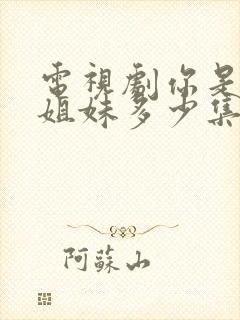 電視劇你是
姐妹多少集
阿蘇山